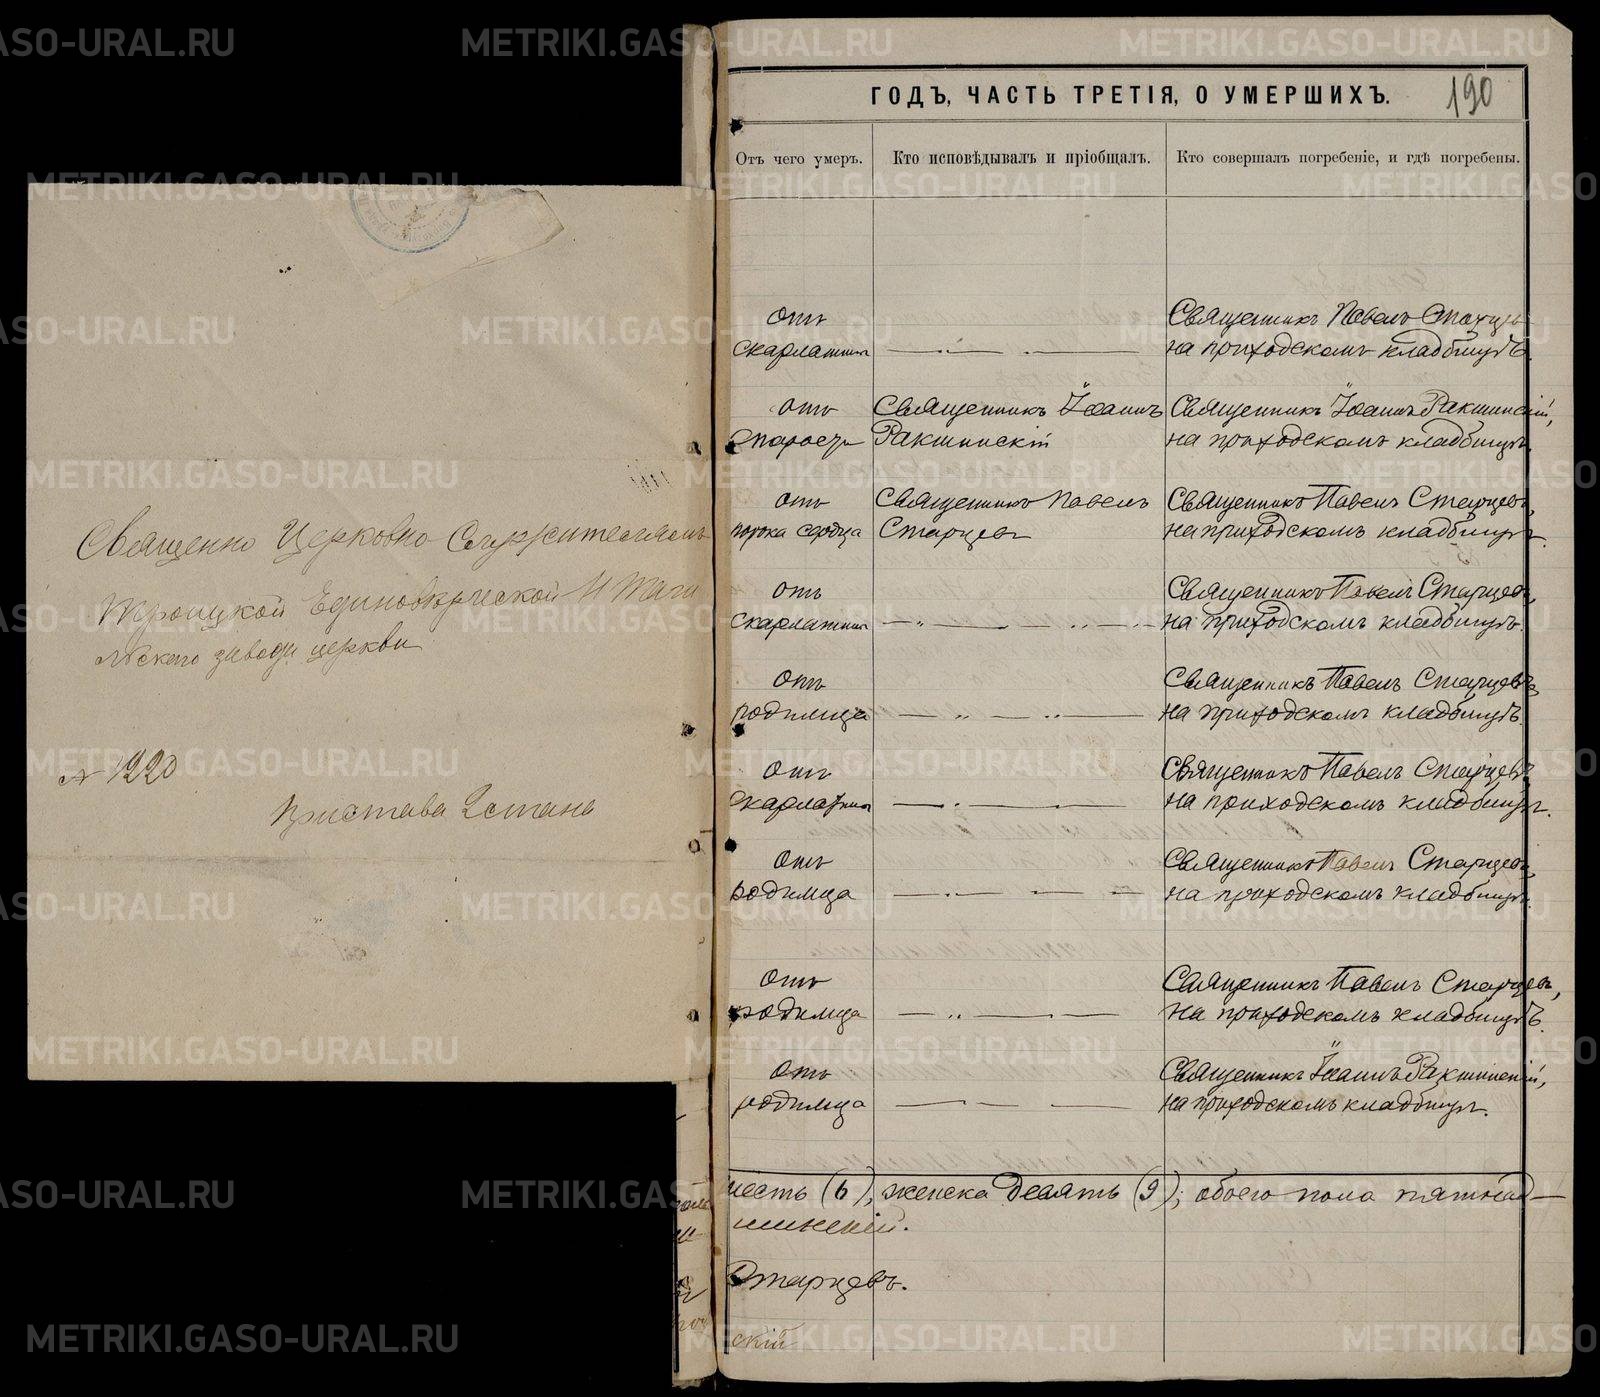 Священно Церковно Служителямъ
Троицкой Единовѣрческой Н Таги
льскаго завода церкви
№ 1220
Пристава 2 стана
ГОДЪ, ЧАСТЬ ТРЕТІЯ, О УМЕРШИХЪ.
190
Отъ чего умеръ. Кто исповѣдывалъ и пріобщалъ. Кто совершалъ погребеніе, и гдѣ погребены.
отъ Священникъ Павелъ Старцевъ
скарлатины на приходскомъ кладбищѣ.
отъ Священникъ Іоаннъ Священникъ Іоаннъ Ракшинскій,
старости Ракшинскій на приходскомъ кладбищѣ.
отъ Священникъ Павелъ Священникъ Павелъ Старцевъ,
порока сердца Старцевъ на приходскомъ кладбищѣ.
отъ Священникъ Павелъ Старцевъ,
скарлатины на приходскомъ кладбищѣ.
отъ Священникъ Павелъ Старцевъ,
родимца на приходскомъ кладбищѣ.
отъ Священникъ Павелъ Старцевъ,
скарлатины на приходскомъ кладбищѣ.
отъ Священникъ Павелъ Старцевъ,
родимца на приходскомъ кладбищѣ.
отъ Священникъ Павелъ Старцевъ,
родимца на приходскомъ кладбищѣ.
отъ Священникъ Іоаннъ Ракшинскій,
родимца на приходскомъ кладбищѣ.
шесть (6), женска девять (9); обоего пола пятнад—
шинскій.
Старцевъ.
скій